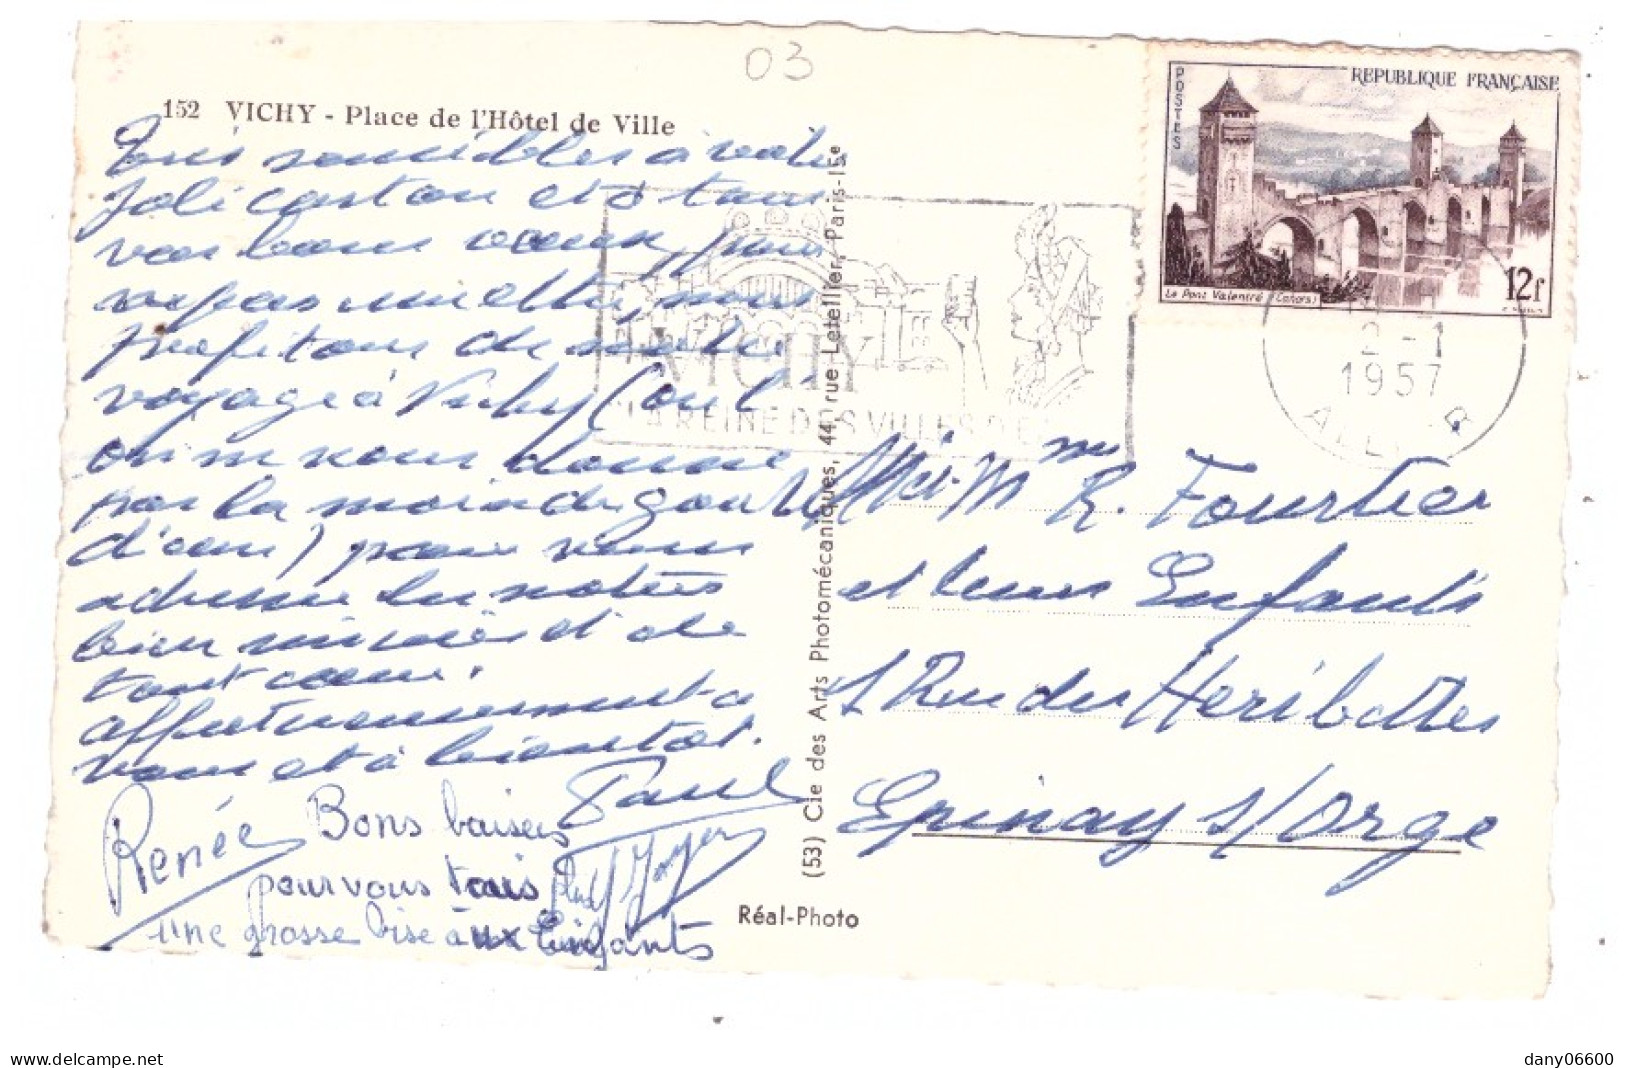 03
152 VICHY - Place de l'Hôtel de Ville
Très sensibles à votre
joli carton et à tous
vos bons voeux, nous
profitons de notre
voyage à Vichy (où l'
on ne nous donne
pas la moindre goutte
d'eau) pour vous
adresser les notres
bien sincères et de
tout coeur.
affectueusement à
vous et à bientot.
Paul
Renée
Bons baisers
pour vous tous
une grosse bise aux Enfants
(53) Cie des Arts Photomécaniques, 44, rue Letellier, Paris-15e
Réal-Photo
POSTES
REPUBLIQUE FRANÇAISE
Le Pont Valentré (Cahors)
12f
2 - 1
1957
ALLIER
VICHY
LA REINE DES VILLES D'E
Mr et Mme R. Fourtier
et leurs Enfants
Rue des Heribettes
Epinay s/Orge
delcampe.net
dany06600